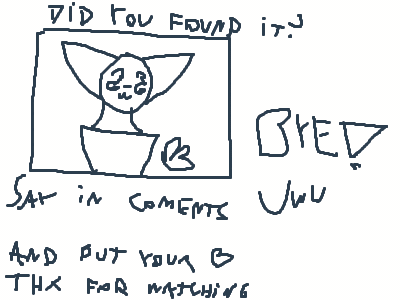 DID YOU FOUND iT?
BYE!
SAY iN COMENTS
UWU
AND PUT YOUR
THX FOR WATCHING